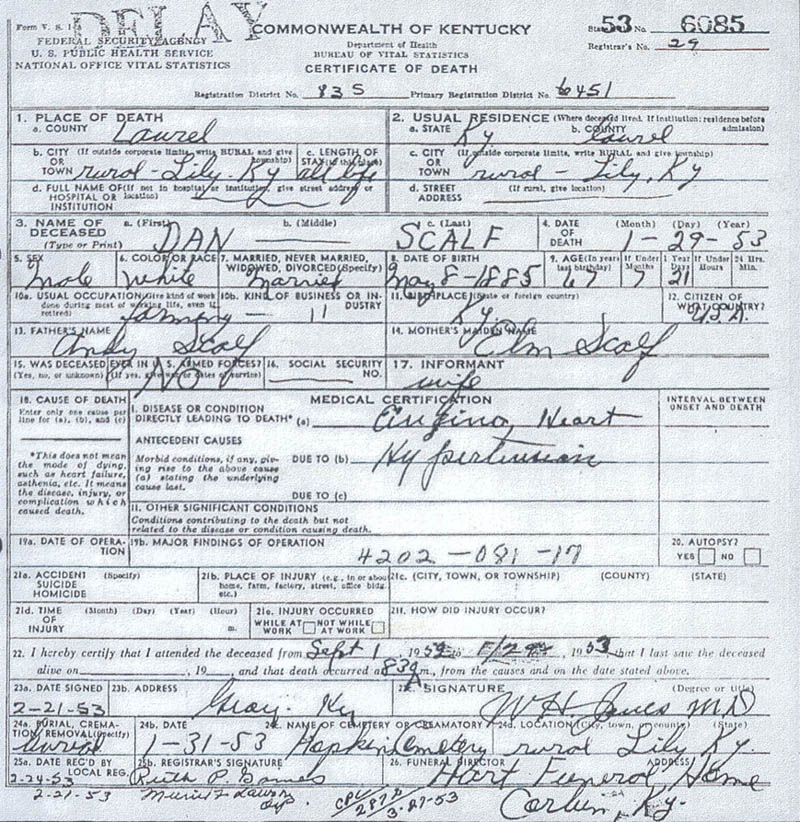 DELAY
Form V. S. 1
FEDERAL SECURITY AGENCY
U. S. PUBLIC HEALTH SERVICE
NATIONAL OFFICE VITAL STATISTICS
COMMONWEALTH OF KENTUCKY
Department of Health
BUREAU OF VITAL STATISTICS
CERTIFICATE OF DEATH
53 No. 6085
Registrar's No. 29
Registration District No. 835 Primary Registration District No. 6451
1. PLACE OF DEATH
a. COUNTY Laurel
2. USUAL RESIDENCE (Where deceased lived. If institution: residence before admission)
a. STATE Ky b. COUNTY Laurel
b. CITY (If outside corporate limits, write RURAL and give township)
OR
TOWN rural - Lily, Ky
c. LENGTH OF STAY (in this place) all life
c. CITY (If outside corporate limits, write RURAL and give township)
OR
TOWN rural - Lily, Ky
d. FULL NAME OF (If not in hospital or institution, give street address or location)
HOSPITAL OR
INSTITUTION
d. STREET (If rural, give location)
ADDRESS
3. NAME OF DECEASED
(Type or Print)
a. (First) DAN
b. (Middle)
c. (Last) SCALF
4. DATE OF DEATH (Month) (Day) (Year)
1-29-53
5. SEX Male
6. COLOR OR RACE white
7. MARRIED, NEVER MARRIED, WIDOWED, DIVORCED (Specify) Married
8. DATE OF BIRTH May 8-1885
9. AGE (In years last birthday) 67
If Under 1 Year Months 7 Days 21
If Under 24 Hrs. Hours Min.
10a. USUAL OCCUPATION (Give kind of work done during most of working life, even if retired) farming -
10b. KIND OF BUSINESS OR INDUSTRY 11
11. BIRTHPLACE (State or foreign country) Ky.
12. CITIZEN OF WHAT COUNTRY? U.S.A.
13. FATHER'S NAME Andy Scalf
14. MOTHER'S MAIDEN NAME Elm Scalf
15. WAS DECEASED EVER IN U. S. ARMED FORCES?
(Yes, no, or unknown) (If yes, give war or dates of service) NO
16. SOCIAL SECURITY NO.
17. INFORMANT wife
18. CAUSE OF DEATH
Enter only one cause per line for (a), (b), and (c)
*This does not mean the mode of dying, such as heart failure, asthenia, etc. It means the disease, injury, or complication which caused death.
MEDICAL CERTIFICATION
INTERVAL BETWEEN ONSET AND DEATH
I. DISEASE OR CONDITION
DIRECTLY LEADING TO DEATH* (a) Angina Heart
ANTECEDENT CAUSES
Morbid conditions, if any, giving rise to the above cause (a) stating the underlying cause last.
DUE TO (b) Hypertension
DUE TO (c)
II. OTHER SIGNIFICANT CONDITIONS
Conditions contributing to the death but not related to the disease or condition causing death.
19a. DATE OF OPERATION
19b. MAJOR FINDINGS OF OPERATION
4202-081-17
20. AUTOPSY?
YES NO
21a. ACCIDENT (Specify)
SUICIDE
HOMICIDE
21b. PLACE OF INJURY (e.g., in or about home, farm, factory, street, office bldg. etc.)
21c. (CITY, TOWN, OR TOWNSHIP) (COUNTY) (STATE)
21d. TIME OF INJURY (Month) (Day) (Year) (Hour) m.
21e. INJURY OCCURRED
WHILE AT WORK NOT WHILE AT WORK
21f. HOW DID INJURY OCCUR?
22. I hereby certify that I attended the deceased from Sept 1, 1952 to 1/29, 1953 that I last saw the deceased
alive on , 19 and that death occurred at 830 A m., from the causes and on the date stated above.
23a. DATE SIGNED 2-21-53
23b. ADDRESS Gray, Ky
23c. SIGNATURE (Degree or title)
W H Jones MD
24a. BURIAL, CREMATION, REMOVAL (Specify) Burial
24b. DATE 1-31-53
24c. NAME OF CEMETERY OR CREAMATORY Hopkin Cemetery
24d. LOCATION (City, town, or county) (State) rural Lily Ky.
25a. DATE REC'D BY LOCAL REG. 2-24-53
25b. REGISTRAR'S SIGNATURE Ruth P.
26. FUNERAL DIRECTOR ADDRESS
Hart Funeral Home
Corbin, Ky.
2-21-53
3-27-53